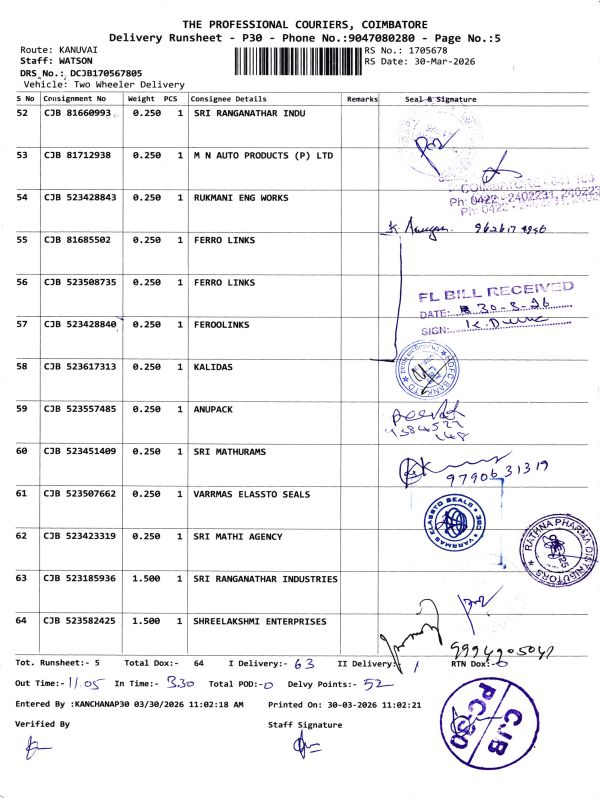 THE PROFESSIONAL COURIERS, COIMBATORE
Delivery Runsheet - P30 - Phone No.:9047080280 - Page No.:5
Route: KANUVAI
RS No.: 1705678
Staff: WATSON
RS Date: 30-Mar-2026
DRS No.: DCJB170567805
Vehicle: Two Wheeler Delivery
S No Consignment No Weight PCS Consignee Details Remarks Seal & Signature
52 CJB 81660993 0.250 1 SRI RANGANATHAR INDU
53 CJB 81712938 0.250 1 M N AUTO PRODUCTS (P) LTD
COIMBATORE
Ph: 0422 - 2402231, 240223
54 CJB 523428843 0.250 1 RUKMANI ENG WORKS
55 CJB 81685502 0.250 1 FERRO LINKS
56 CJB 523508735 0.250 1 FERRO LINKS
FL BILL RECEIVED
DATE: 30-3-26
SIGN:
57 CJB 523428840 0.250 1 FEROOLINKS
58 CJB 523617313 0.250 1 KALIDAS
HDFC BANK LTD
59 CJB 523557485 0.250 1 ANUPACK
60 CJB 523451409 0.250 1 SRI MATHURAMS
9790631319
61 CJB 523507662 0.250 1 VARRMAS ELASSTO SEALS
VARRMAS ELASSTO SEALS
62 CJB 523423319 0.250 1 SRI MATHI AGENCY
RATHNA PHARMA DISTRIBUTORS
63 CJB 523185936 1.500 1 SRI RANGANATHAR INDUSTRIES
64 CJB 523582425 1.500 1 SHREELAKSHMI ENTERPRISES
Tot. Runsheet:- 5 Total Dox:- 64 I Delivery:- 63 II Delivery:- 1 RTN Dox:-0
Out Time:- 11.05 In Time:- 3.30 Total POD:-0 Delvy Points:- 52
Entered By :KANCHANAP30 03/30/2026 11:02:18 AM Printed On: 30-03-2026 11:02:21
Verified By Staff Signature
CJB
PC 30
CJB